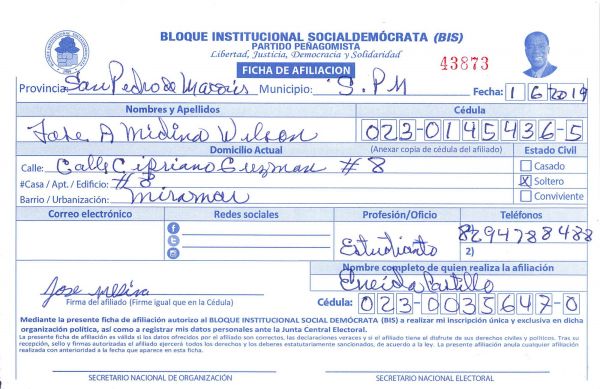 BLOQUE INSTITUCIONAL SOCIALDEMÓCRATA (BIS)
PARTIDO PEÑAGOMISTA
Libertad, Justicia, Democracia y Solidaridad
43873
FICHA DE AFILIACION
Provincia: San Pedro de Macorís Municipio: S.P.M Fecha: 1 6 2019
Nombres y Apellidos Cédula
Jose A Midina Wilson 023-0145436-5
Domicilio Actual (Anexar copia de cédula del afiliado) Estado Civil
Calle: Calle Cipriano Guzman #8 Casado
#Casa / Apt. / Edificio: #8 X Soltero
Barrio / Urbanización: Miramar Conviviente
Correo electrónico Redes sociales Profesión/Oficio Teléfonos
Estudiante 8294788488
2)
Nombre completo de quien realiza la afiliación
Jose medina Eneida Castillo
Firma del afiliado (Firme igual que en la Cédula) Cédula: 023-0035647-0
Mediante la presente ficha de afiliación autorizo al BLOQUE INSTITUCIONAL SOCIAL DEMÓCRATA (BIS) a realizar mi inscripción única y exclusiva en dicha
organización política, así como a registrar mis datos personales ante la Junta Central Electoral.
La presente ficha de afiliación es válida si los datos ofrecidos por el afiliado son correctos, las declaraciones veraces y si el afiliado tiene el disfrute de sus derechos civiles y políticos. Tras su
recepción, sello y firmas autorizadas el afiliado ejercerá todos los derechos y los deberes estatutariamente sancionados, de acuerdo a la ley. La presente afiliación anula cualquier afiliación
realizada con anterioridad a la fecha que aparece en esta ficha.
SECRETARIO NACIONAL DE ORGANIZACIÓN SECRETARIO NACIONAL ELECTORAL